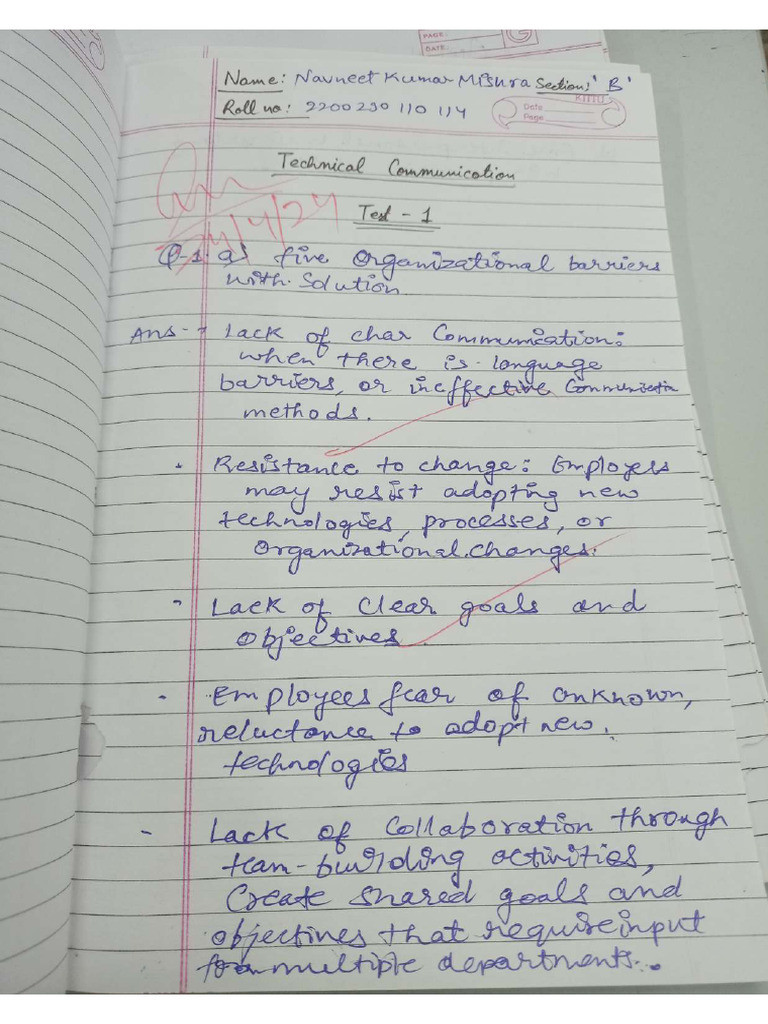 PAGE:
DATE:
Name: Navneet Kumar Mishra Section: 'B'
Roll no: 2200290 110 114
Date
Page
Technical Communication
24/4/24
Test - 1
Q-1. a) five Organizational barriers
with. Solution
Ans - Lack of char Communication:
when there is language
barriers, or ineffective Communication
methods.
• Resistance to change: Employees
may resist adopting new
technologies, processes, or
Organizational changes.
- Lack of Clear goals and
objectives.
- Employees fear of unknown,
reluctance to adopt new.
technologies
- Lack of Collaboration through
team-building activities,
Create shared goals and
objectives that require input
multiple departments..